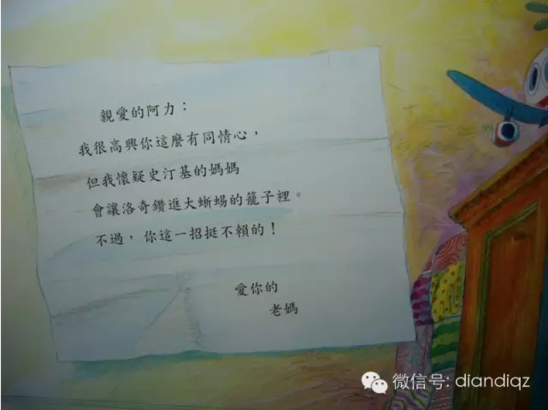 親愛的阿力：
我很高興你這麼有同情心，
但我懷疑史汀基的媽媽
會讓洛奇鑽進大蜥蜴的籠子裡。
不過，你這一招挺不賴的！
愛你的
老媽
微信号: diandiqz